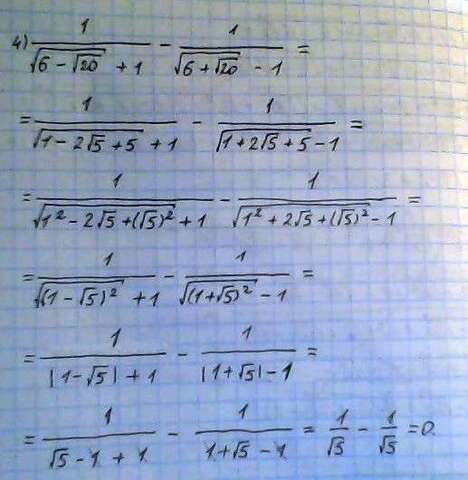 4) 1/(√(6 - √20) + 1) - 1/(√(6 + √20) - 1) =
= 1/(√(1 - 2√5 + 5) + 1) - 1/(√(1 + 2√5 + 5) - 1) =
= 1/(√(1² - 2√5 + (√5)²) + 1) - 1/(√(1² + 2√5 + (√5)²) - 1) =
= 1/(√((1 - √5)²) + 1) - 1/(√((1 + √5)²) - 1) =
= 1/(|1 - √5| + 1) - 1/(|1 + √5| - 1) =
= 1/(√5 - 1 + 1) - 1/(1 + √5 - 1) = 1/√5 - 1/√5 = 0.